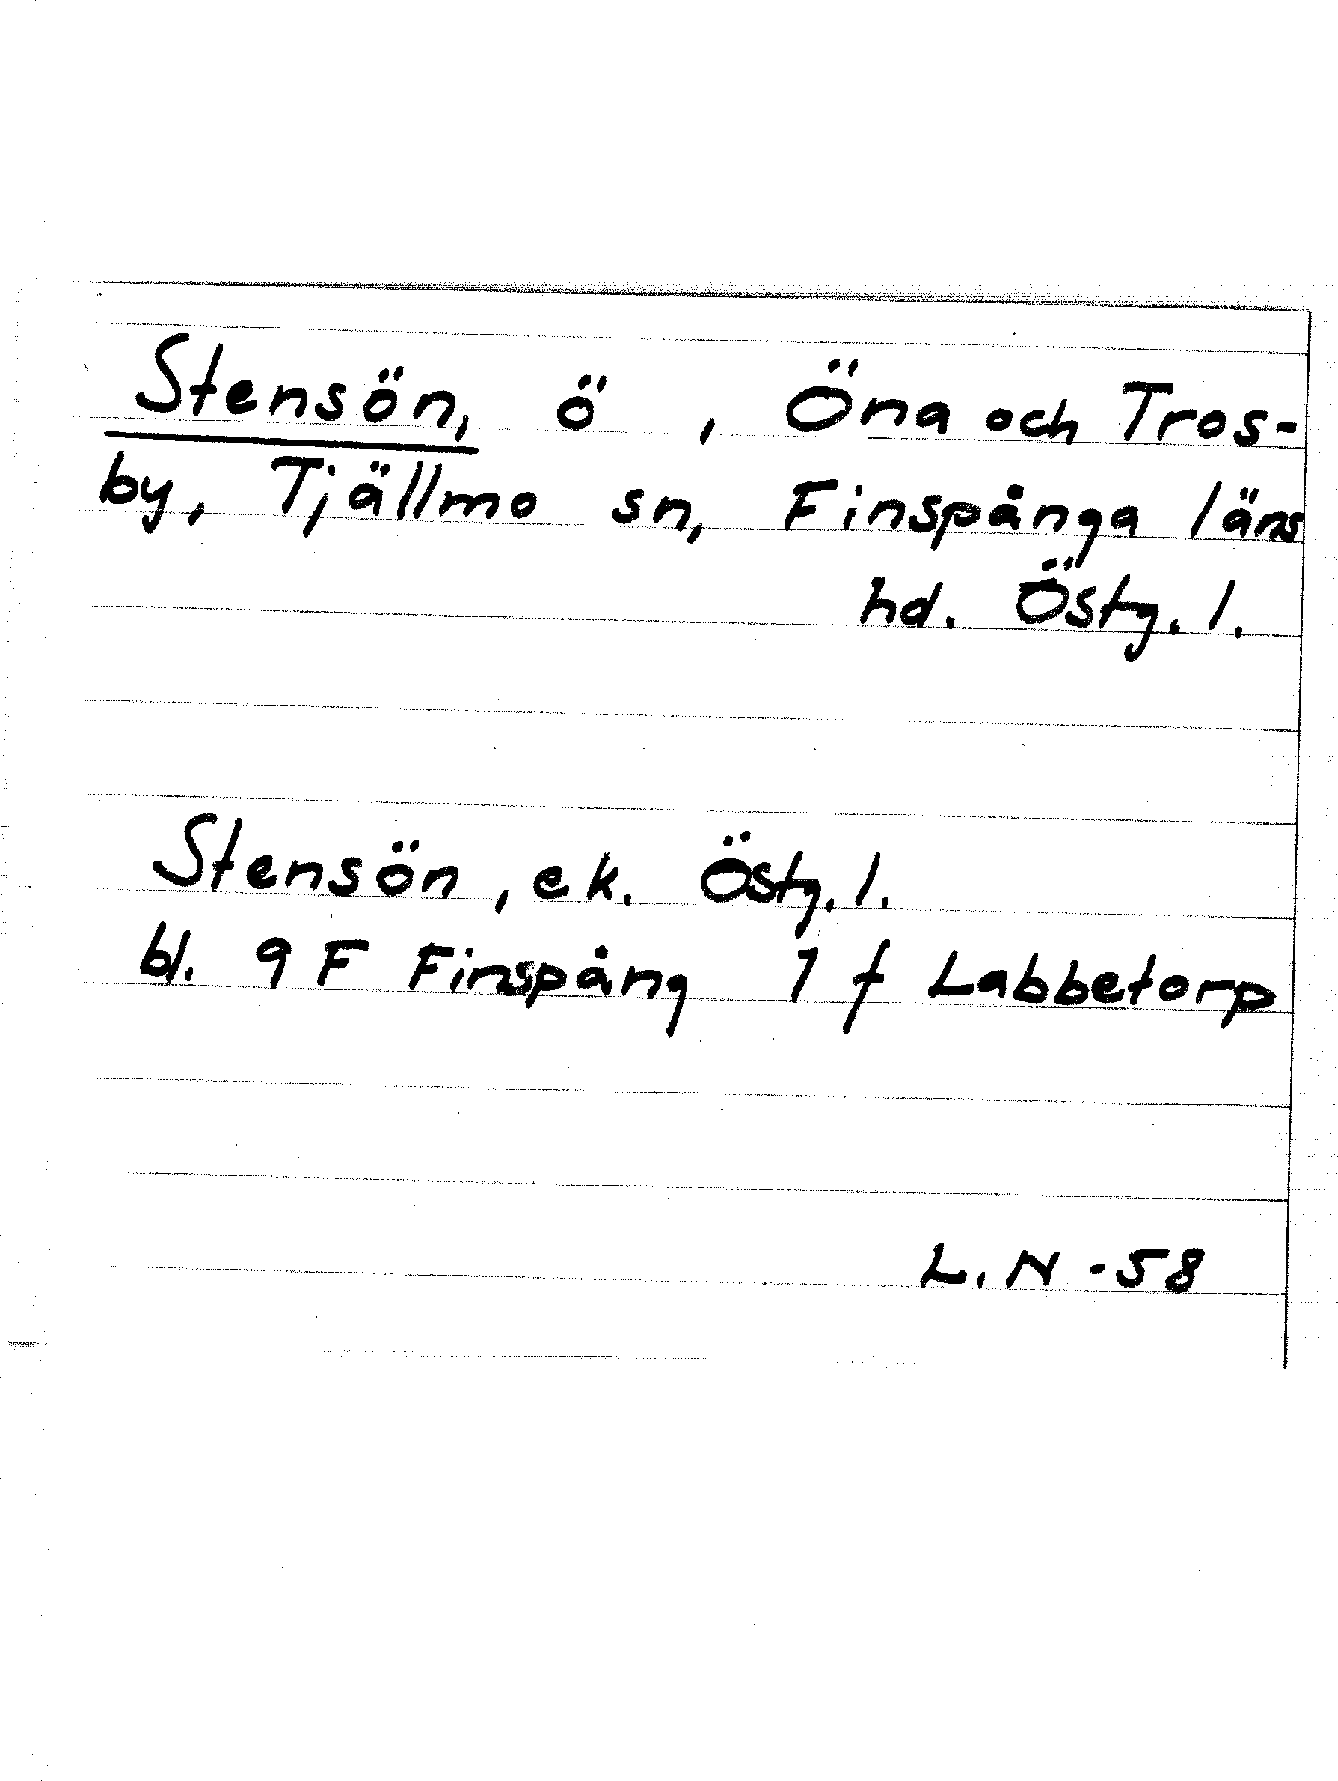 Stensön, ö , Öna och Tros-
by, Tjällmo sn, Finspånga läns
hd. Östg. l.
Stensön, ek. Östg. l.
bl. 9 F Finspång 7 f Labbetorp
L. N - 58